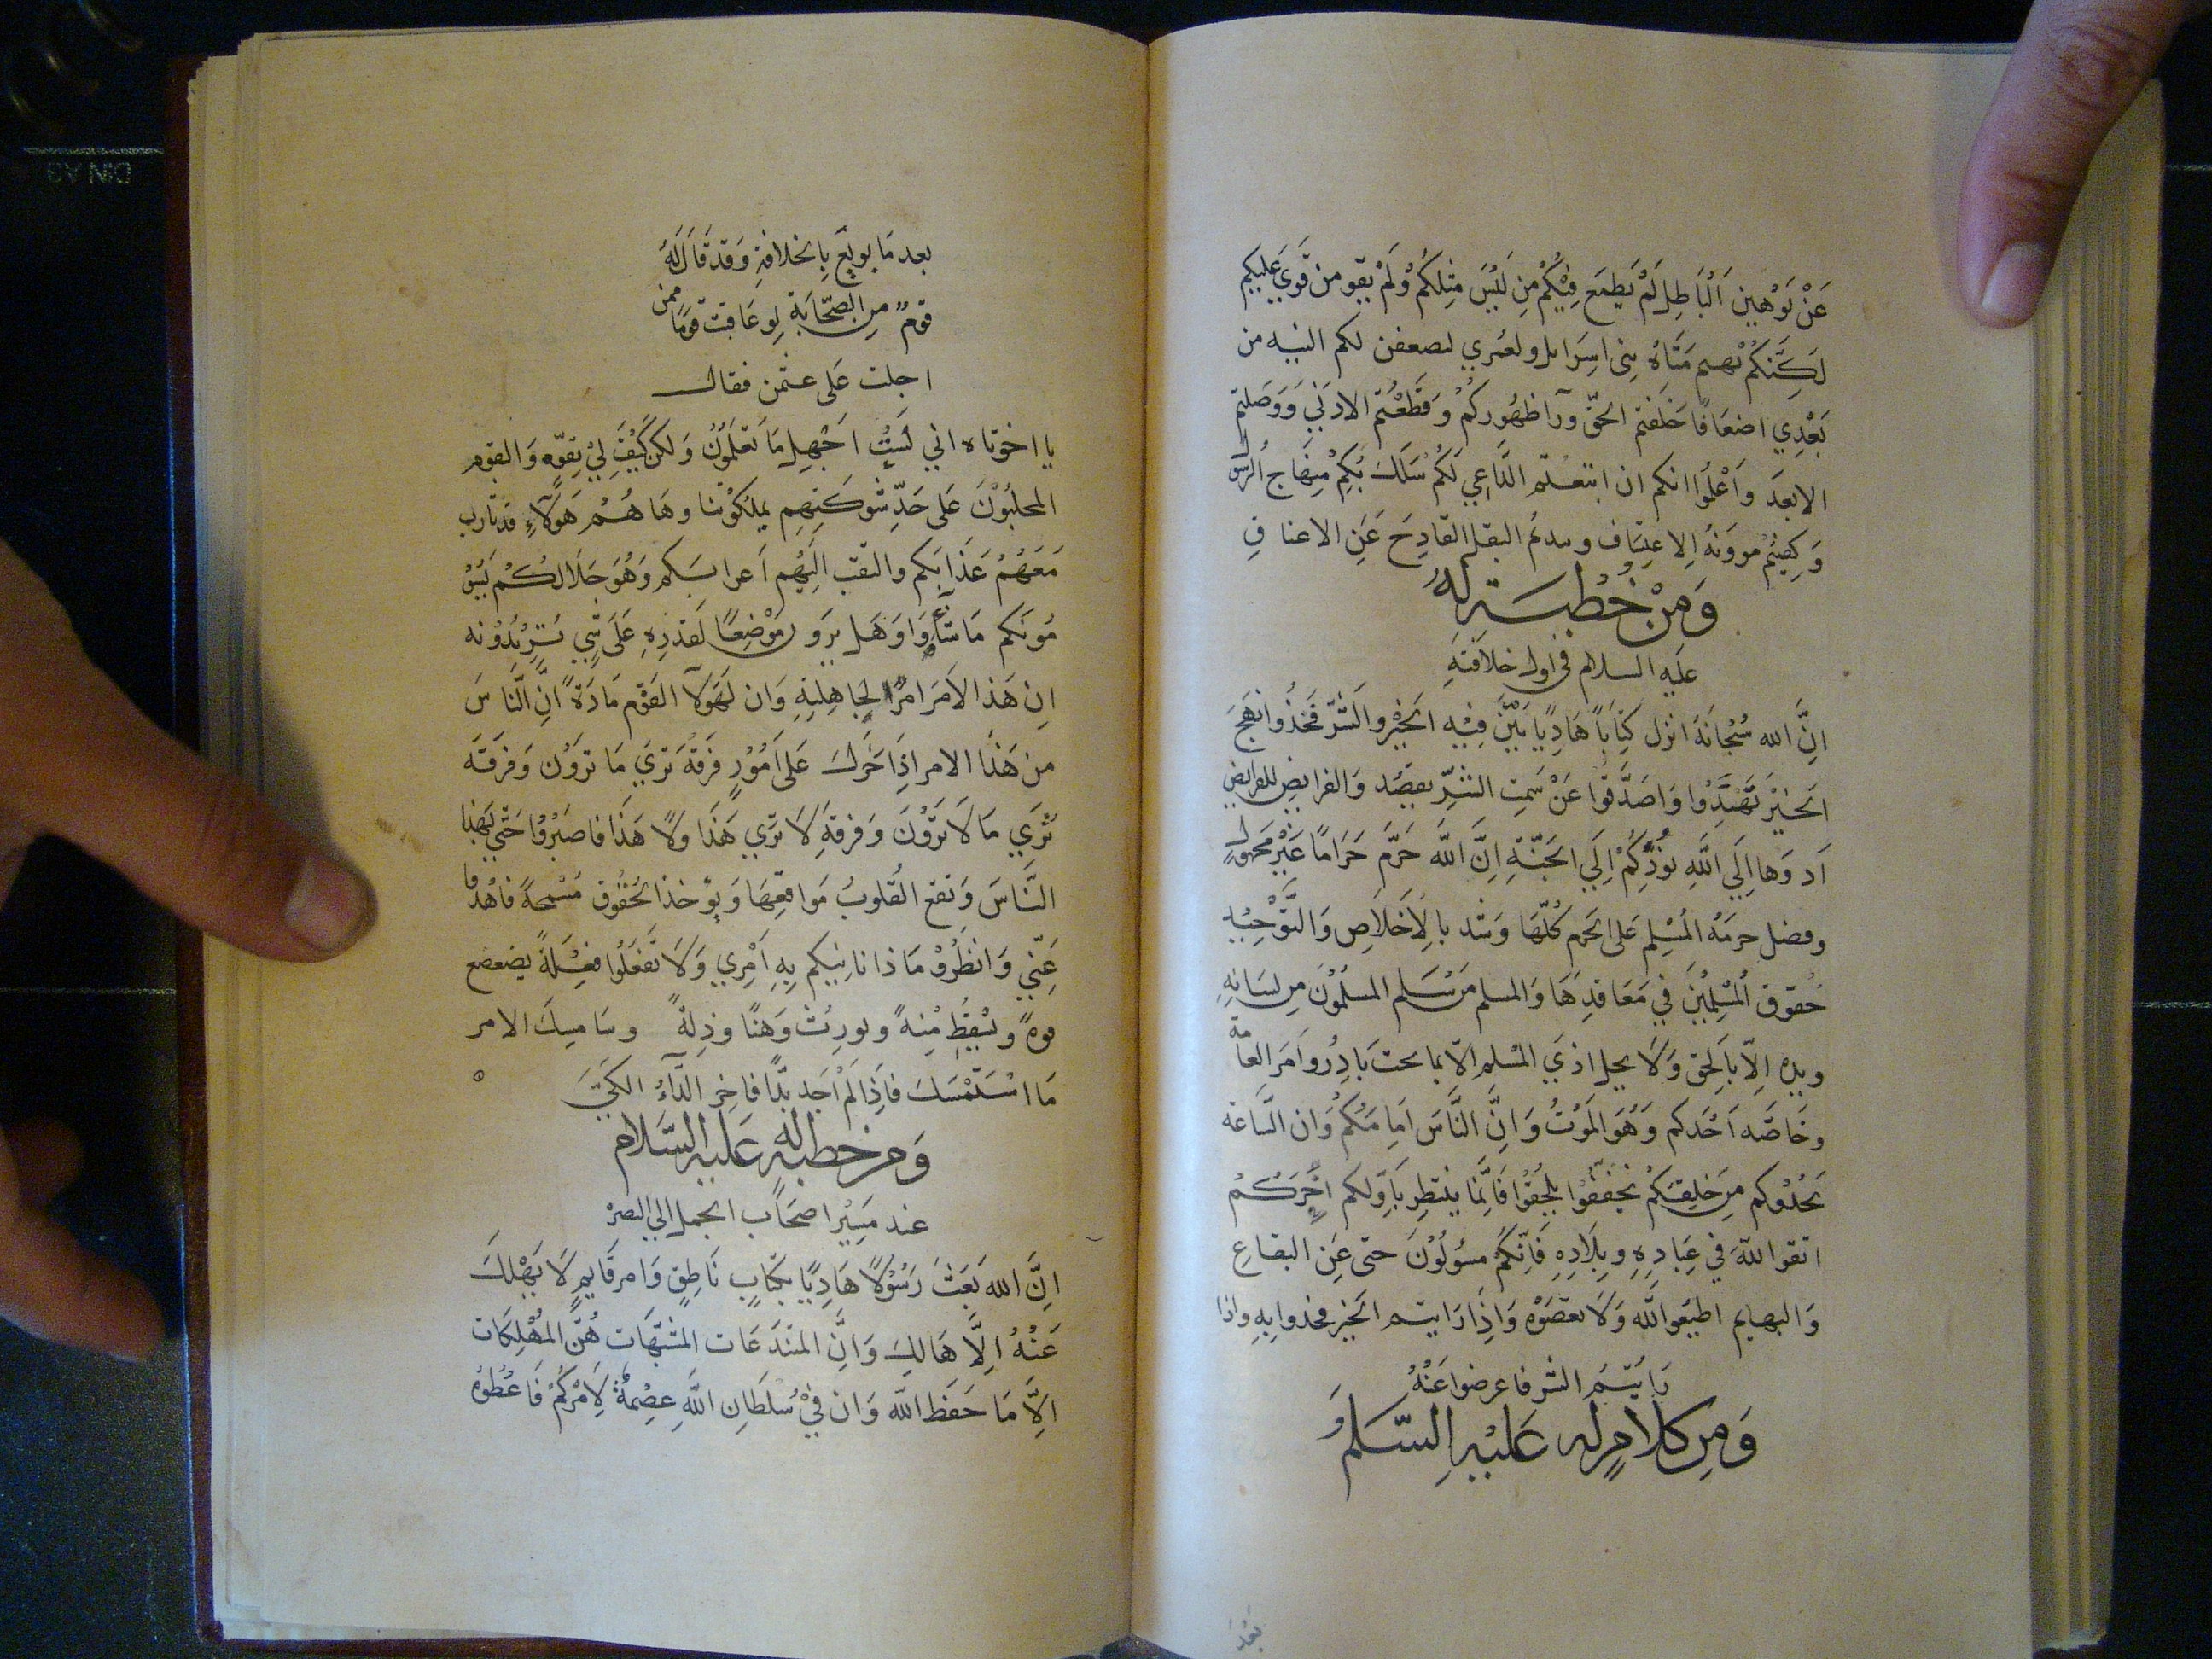 عَنْ تَوْهين اَلْبَاطِل لَمْ يَطمَع فِيْكُمْ مِن لَيْسَ مِثلكُمْ وَلَمْ يقو من قَوِيَ عليكم
لَكِنَّكُمْ تهتم مَتَاهَ بنى اسِرَايل ولعَمري ليضعفن لكم التيه من
بَعْدِي اضعَافًا خَلَفتم الحقّ ورآ ظهُوركُمْ وَقَطَعْتم الادنَي وَوَصَلتم
الابعدَ وَاَعْلَمُوا انكم ان اتبعتم الدَّاعِي لَكُمْ سَلَكَ بُكِمْ مِنهَاج الرسُول
وَكفيتم مووَنه اِلاعتِسَاف ونبذتم الثقل الفَادِحَ عَنِ الاعناقِ
وَمِنْ خُطبَة لهُ
عليَه السلام في اول خلافتهِ
انَّ الله سُبْحَانَهُ انزل كِتَابًا هَادِيًا بَيَّنَ فِيْهِ الخيْر والشَّر فَخذُوا نهجَ
الخيْرَ تَهْتَدُوا وَاصَدَّفُوا عَنْ سَمتِ الشرِّ تقصُد وَالفرايضَ للفرايض
اَدوهَا اِلَي اللَّهِ تؤدِّكُمْ اِلَي الجَنّةِ اِنَّ اللَّه حَرَّمَ حَرَامًا غَيْر مَجْهول
وفضل حرمَهَ المُسْلِم عَلى الحَرم كُلّهَا وَشَد بالِاخَلاَصِ وَالتَّوْحيْد
حُقوق المُسْلِمْيْنَ فِي مَعَاقدِهَا وَالمسلم مَن سَلم المسلمُوْنَ مِن لسَانهِ
ويده اِلّا بَالحق وَلَا يحل اذيَ المسْلم الاّ بما يحب بَادِرُوا اَمرَ العَامة
وخَاصَّه اَحَدكم وَهُوَ المَوْتُ وَانَّ النَّاسَ اَمَامَكُمْ وَان السَّاعَة
تحْدُوكم مِنَ خَلفكُمْ تخففُوْا تلحقُوْا فَانِّمَا ينتظر بَاوّلكم اخَركُمْ
اتقوا اللَّهَ فِي عِبَادِهِ وبِلَادِهِ فَانّكمْ مسؤلُوْنَ حتى عَنِ البقَاعِ
وَالبهايم اطيْعُوا اللَّه وَلَا تعصَوْه وَاذَا رَايتم الخيْر فخذوا بهِ واذا
رَايتمْ الشر فاعرضوا عَنْهُ
وَمِن كلَامٍ لهِ عَليْهِ السَّلَمْ
بعْدَ
بعد مَا بويعَ بِالخلافةِ وَقدْ قَالَ لَهُ
قومٌ مِن الصّحَابَة لو عَاقبت قومًا ممن
اجلب عَلى عثمن فقال
يا اخوتاه اني لَسَتُ اَجْهل مَا تَعْلَمُوْن وَلكن كَيْفَ لِيْ بِقوّه وَالقوم
المجلبُوْنَ عَلى حَدِّ شَوكَتِهم يملكُوْننا وهَاهُمْ هَولاَءِ قد ثارت
مَعَهُمْ عَبْدَانكم والتفت اِلَيْهم اَعرابكم وَهُوَ خلَالكُمْ يَسو
مُونَكم مَاشَاوا وَهَل تروَن مَوْضِعًا لِقدْرهِ عَلَى شَي تُرِيْدُوْنه
انِ هَذا الاَمرَ امرُ جَاهلِيّةِ وَان لهَوَلاَ القوْم مَادَةً انِّ النَّاسَ
من هَذَا الامر اذَا حَركَ عَلى اَمُوْرٍ فرَقةٌ تَريَ مَا تروَنْ وَفرَقَه
تَرَي مَا لَا تَروْنَ وَفرقةٌ لَا ترَي هَذَا ولَا هَذَا فاصبرُوْا حَتّي يَهْدَا
النَّاسَ وَتقع القُلوبُ مَواقعِهَا وَتؤخذ الحُقوق مُسْمحةً فاهْدُوا
عَنّي وَانظُرُوْ مَاذا ياتيكم بِهِ اَمْرِي وَلَا تفْعَلُوا فعْلةً تضعضع
قوةً وتسْقِط مُنةً وتورِثْ وَهَنًا وذِلَّةً وسَامسِكَ الامر
مَا اسْتَمْسَكَ فاَذِا لَمْ اَجَد بُدًّا فاخِر الدَّآءِ الكَيّ
وَمن خطبه له عَليْهِ السَّلَام
عند مَسِيْر اصحَاب الجمل الي البصرْ
انِّ الله بَعَثَ رَسُوْلًا هَادِيًا بكتَابٍ نَاطِقٍ وَامر قَايمٍ لَا يَهْلِكَ
عَنْهُ اِلَّا هَالِكٌ وَانَّ المبتدعَات المشَبّهَات هُنَّ المهْلكَات
الِّا مَا حَفظ اللَّه وَان فيْ سُلطَانِ اللَّهِ عِصْمةً لِاَمْركُمْ فَاعْطُوْهُ